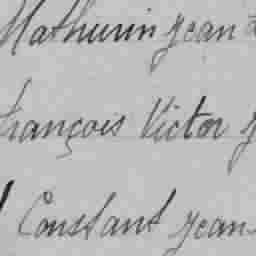 Mathurin jean
françois Victor
Constant jean